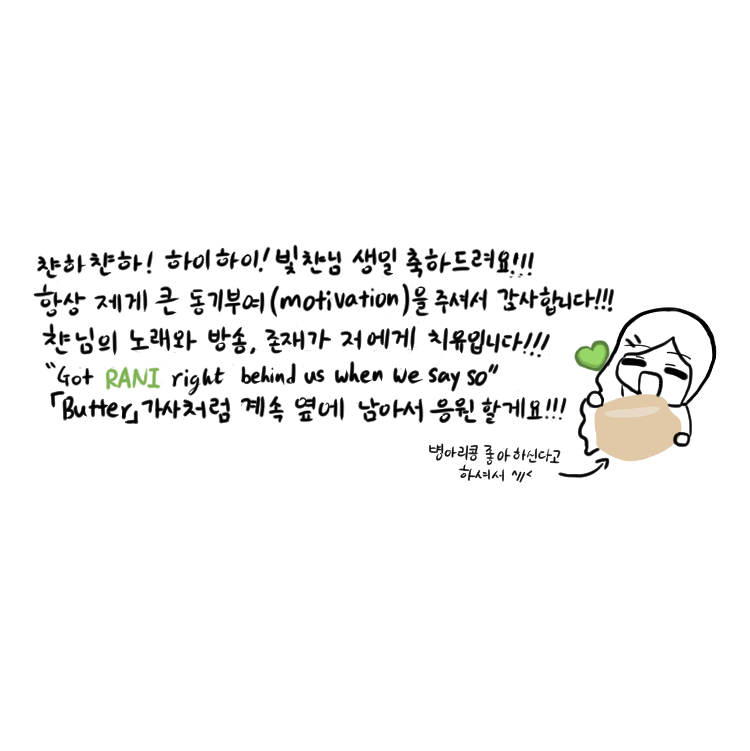 챤하챤하! 하이하이! 빛챤님 생일 축하드려요!!!
항상 제게 큰 동기부여(motivation)을 주셔서 감사합니다!!!
챤님의 노래와 방송, 존재가 저에게 치유입니다!!!
"Got RANI right behind us when we say so"
「Butter」가사처럼 계속 옆에 남아서 응원할게요!!!
병아리콩 좋아하신다고
하셔서 ^//<